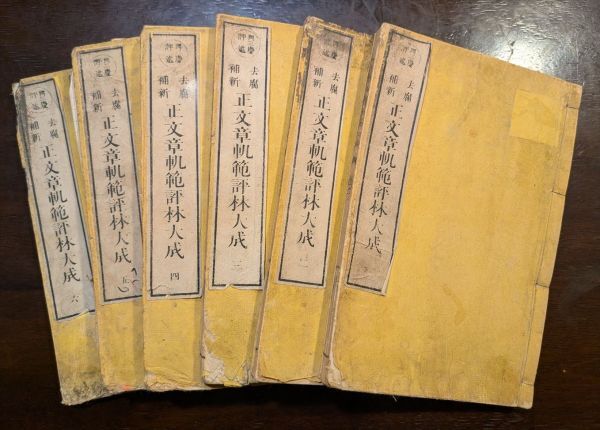 去腐
補新
正文章軌範評林大成
去腐
補新
正文章軌範評林大成 二
去腐
補新
正文章軌範評林大成 三
去腐
補新
正文章軌範評林大成 四
去腐
補新
正文章軌範評林大成 五
去腐
補新
正文章軌範評林大成 六